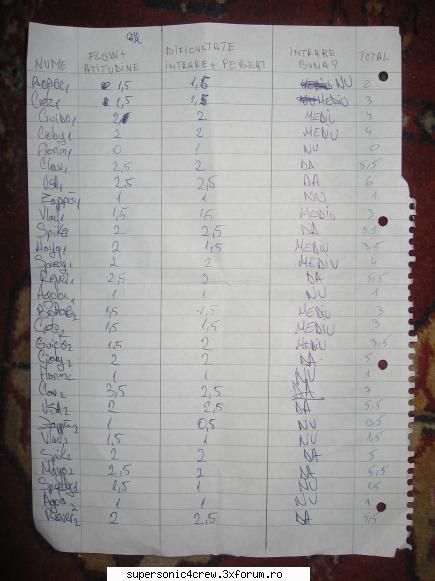 NUME FLOW+ ATITUDINE DIFICULTATE INTRARE+PERBERT INTRARE BUNA? TOTAL
1,5 1,5 NU 2
1,5 1,5 MEDIU 3
Guido1 2 2 MEDIU 4
Cioby1 2 2 MEDIU 4
Florin1 0 1 NU 0
Clau1 2,5 2 DA 5,5
VSA1 2,5 2,5 DA 6
Zappa1 1 1 NU 1
Vlad1 1,5 1,5 MEDIU 3
Spike 2 2,5 DA 5,5
Mayo1 2 1,5 MEDIU 3,5
Speedy1 2 2 MEDIU 4
Rever1 2,5 2 DA 5,5
1 1 NU 1
1,5 1,5 MEDIU 3
1,5 1,5 MEDIU 3
Guido2 1,5 2 MEDIU 3,5
Cioby2 2 2 DA 5
Florin2 1 1 NU 1
Clau2 3,5 2,5 DA 7
VSA2 2 2,5 DA 5,5
Zappa2 1 0,5 NU 0,5
Vlad2 1,5 1 NU 1,5
Spike2 2 2 DA 5
Mayo2 2,5 2 DA 5,5
Speedy2 1,5 1 NU 1,5
1 1 NU 1
Rever2 2 2,5 DA 5,5
supersonic4crew.3xforum.ro